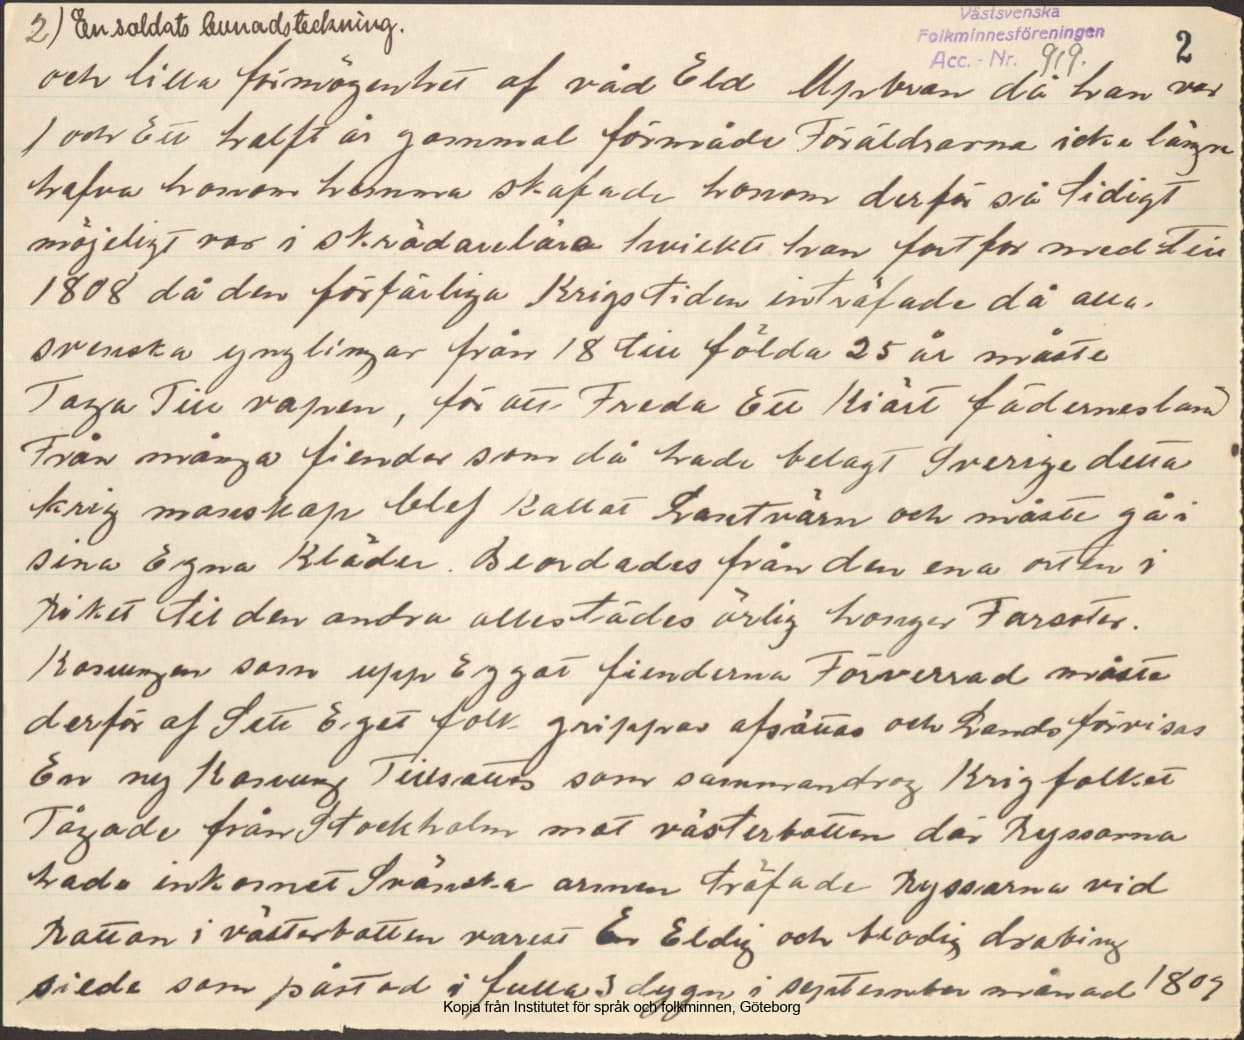 2) En soldats levnadsteckning.
Västsvenska
Folkminnesföreningen
Acc. - Nr. 919.
2
och lilla förmögenhet af våd Eld Upbran då han var
1 och Ett halft år gammal förmåde Föräldrarna icke längre
hafva honom hemma skafade honom derför så tidigt
möjeligt var i skrädarelära hvilket han fortfor med till
1808 då den förfärliga Krigstiden inträfade då alla
svenska ynglingar från 18 till földa 25 år måste
Taga Till vapen, för att Freda Ett Kiärt fädernesland
Från många fiender som då hade belagt Sverige detta
krig manskap blef Kallat Lantvärn och måste gå i
sina Egna Kläder. Beordades från den ena orten i
Riket till den andra allestädes ärlig honger Farsoter.
Konungen som upp Eggat fienderna Förverrad måste
derför af Sett Eget folk grippas afsättas och Landsförvisas
En ny Konung Tillsattes som sammandrog Krigfolket
Tågade från Stockholm mot västerbotten där Ryssarna
hade inkomet Svänska armen träfade Ryssarna vid
Rattan i västerbotten varest En Eldig och blodig drabing
siede som påstod i fulla 3 dygn i september månad 1809
Kopia från Institutet för språk och folkminnen, Göteborg